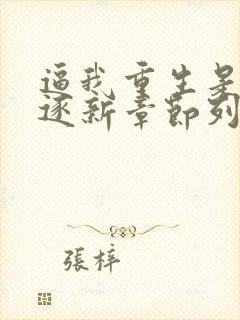 逼我重生是
逐新章節列
張梓